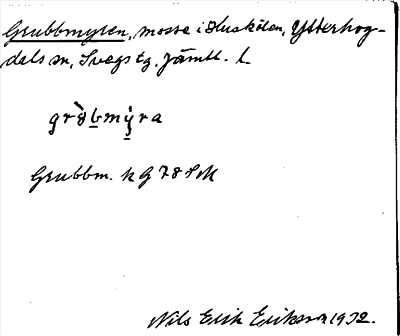 Grubbmyren, mosse i Huskölen, Ytterhog-
dals sn, Svegs tg. Jämtl. l.
grðbmyra
Grubbm. k G 78 SM
Nils Erik Eriksson 1932.